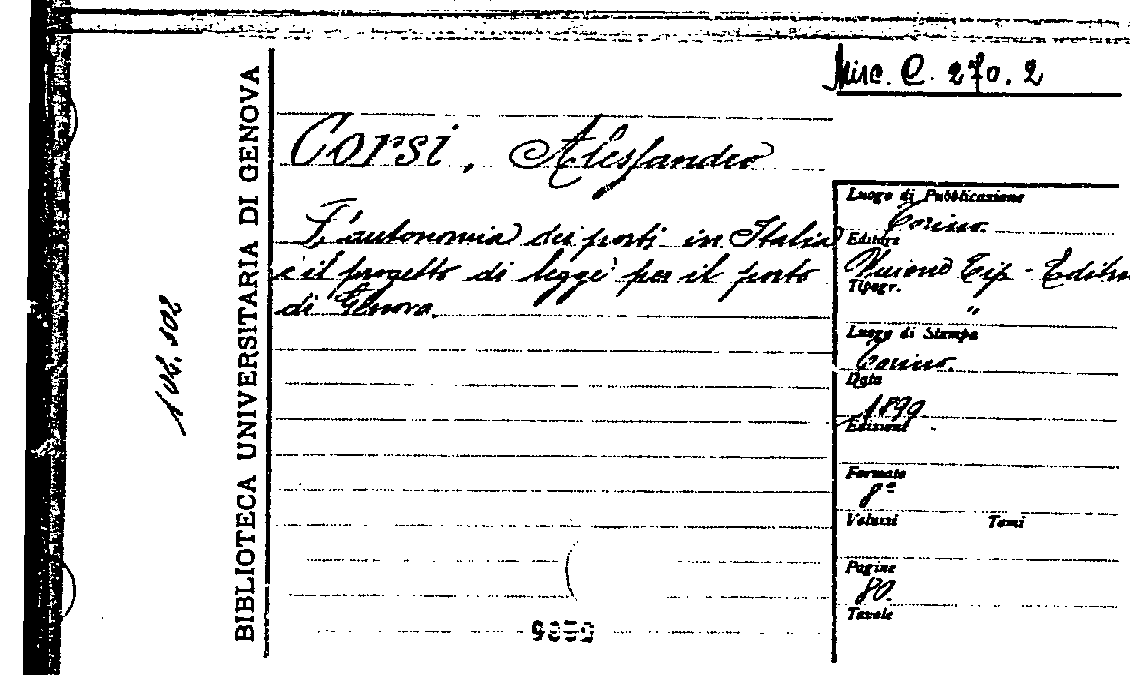 Misc. C. 270. 2
BIBLIOTECA UNIVERSITARIA DI GENOVA
104.102
Corsi, Alessandro
L'autonomia dei porti in Italia
e il progetto di legge per il porto
di Genova.
Luogo di Pubblicazione
Torino.
Editore
Unione Tip - Editr
Tipogr.
"
Luogo di Stampa
Torino.
Data
1899
Edizione
Formato
8°
Volumi Tomi
Pagine
80.
Tavole